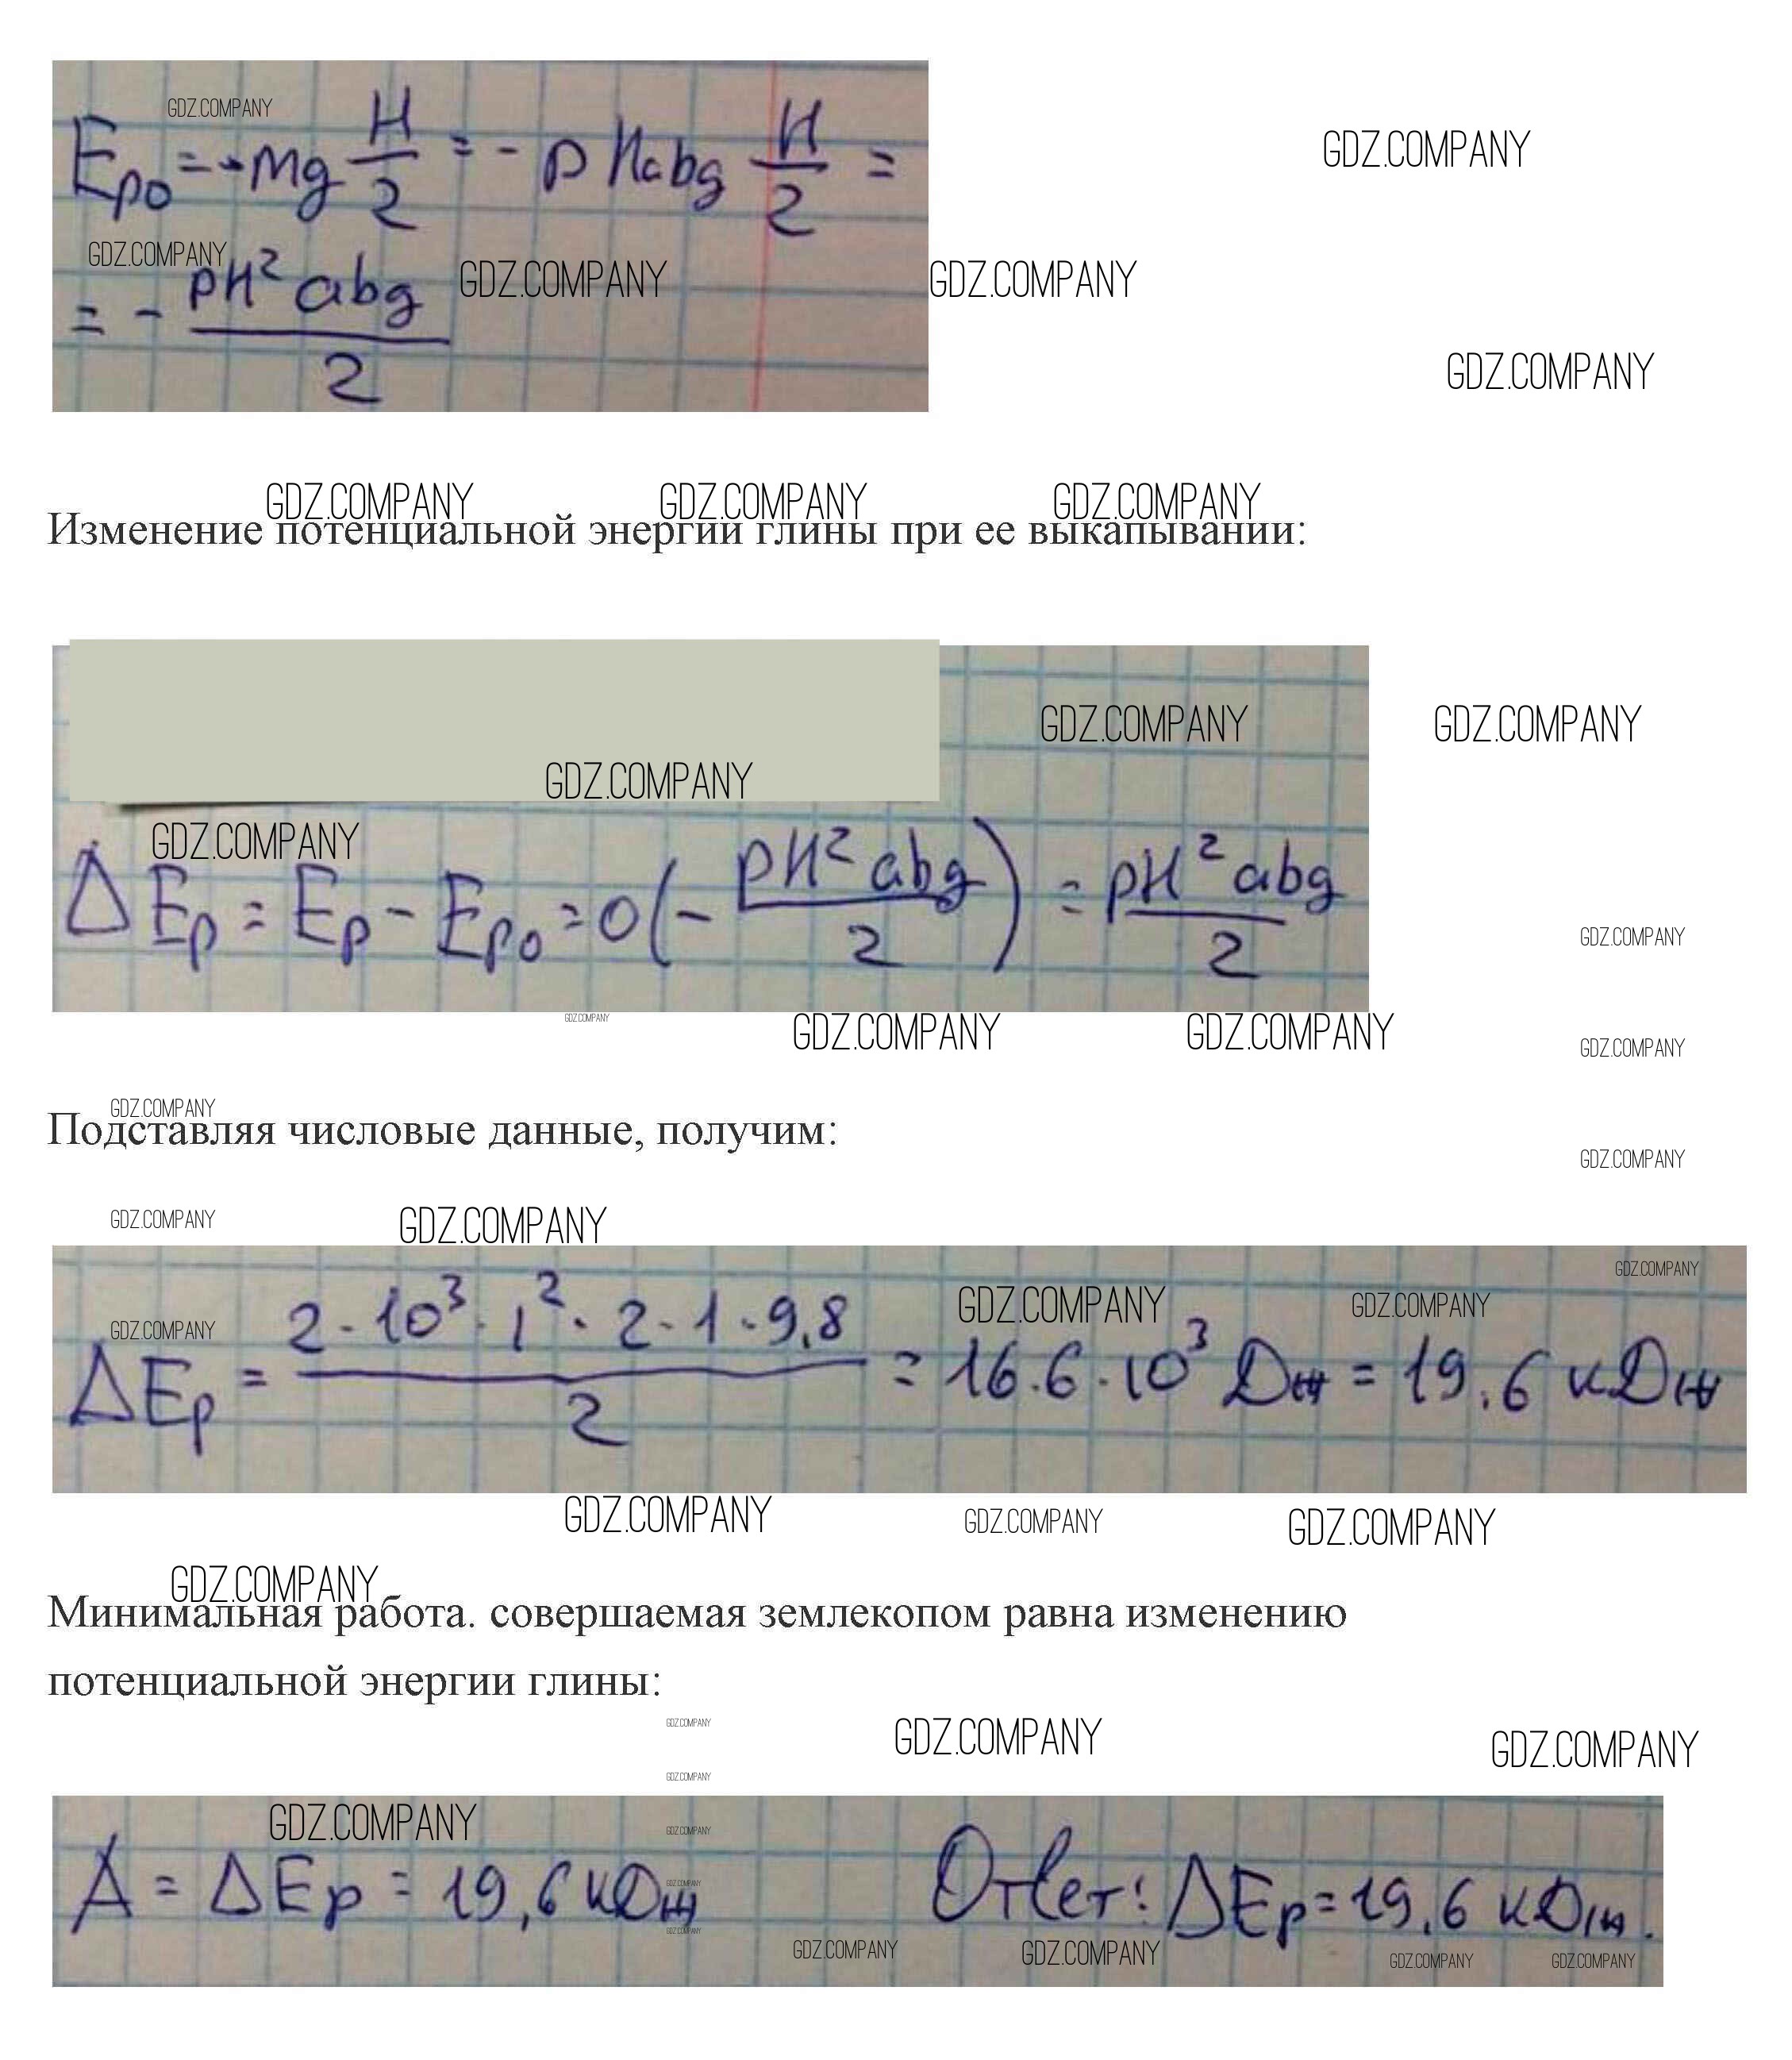 GDZ.COMPANY
Epo = - mg H/2 = - ρHabg H/2 =
GDZ.COMPANY
GDZ.COMPANY GDZ.COMPANY GDZ.COMPANY
= - ρH² abg / 2
GDZ.COMPANY
GDZ.COMPANY GDZ.COMPANY GDZ.COMPANY
Изменение потенциальной энергии глины при ее выкапывании:
GDZ.COMPANY GDZ.COMPANY
GDZ.COMPANY
GDZ.COMPANY
ΔEp = Ep - Epo = 0(- ρH² abg / 2) = ρH² abg / 2
GDZ.COMPANY
GDZ.COMPANY GDZ.COMPANY GDZ.COMPANY
GDZ.COMPANY
GDZ.COMPANY
Подставляя числовые данные, получим:
GDZ.COMPANY
GDZ.COMPANY GDZ.COMPANY
GDZ.COMPANY
GDZ.COMPANY GDZ.COMPANY
GDZ.COMPANY
ΔEp = 2·10³·1²·2·1·9,8 / 2 = 16.6·10³ Дж = 19,6 кДж
GDZ.COMPANY GDZ.COMPANY GDZ.COMPANY
GDZ.COMPANY
Минимальная работа. совершаемая землекопом равна изменению
потенциальной энергии глины:
GDZ.COMPANY GDZ.COMPANY GDZ.COMPANY
GDZ.COMPANY
GDZ.COMPANY GDZ.COMPANY
A = ΔEp = 19,6 кДж Ответ: ΔEp = 19,6 кДж.
GDZ.COMPANY
GDZ.COMPANY
GDZ.COMPANY GDZ.COMPANY GDZ.COMPANY GDZ.COMPANY